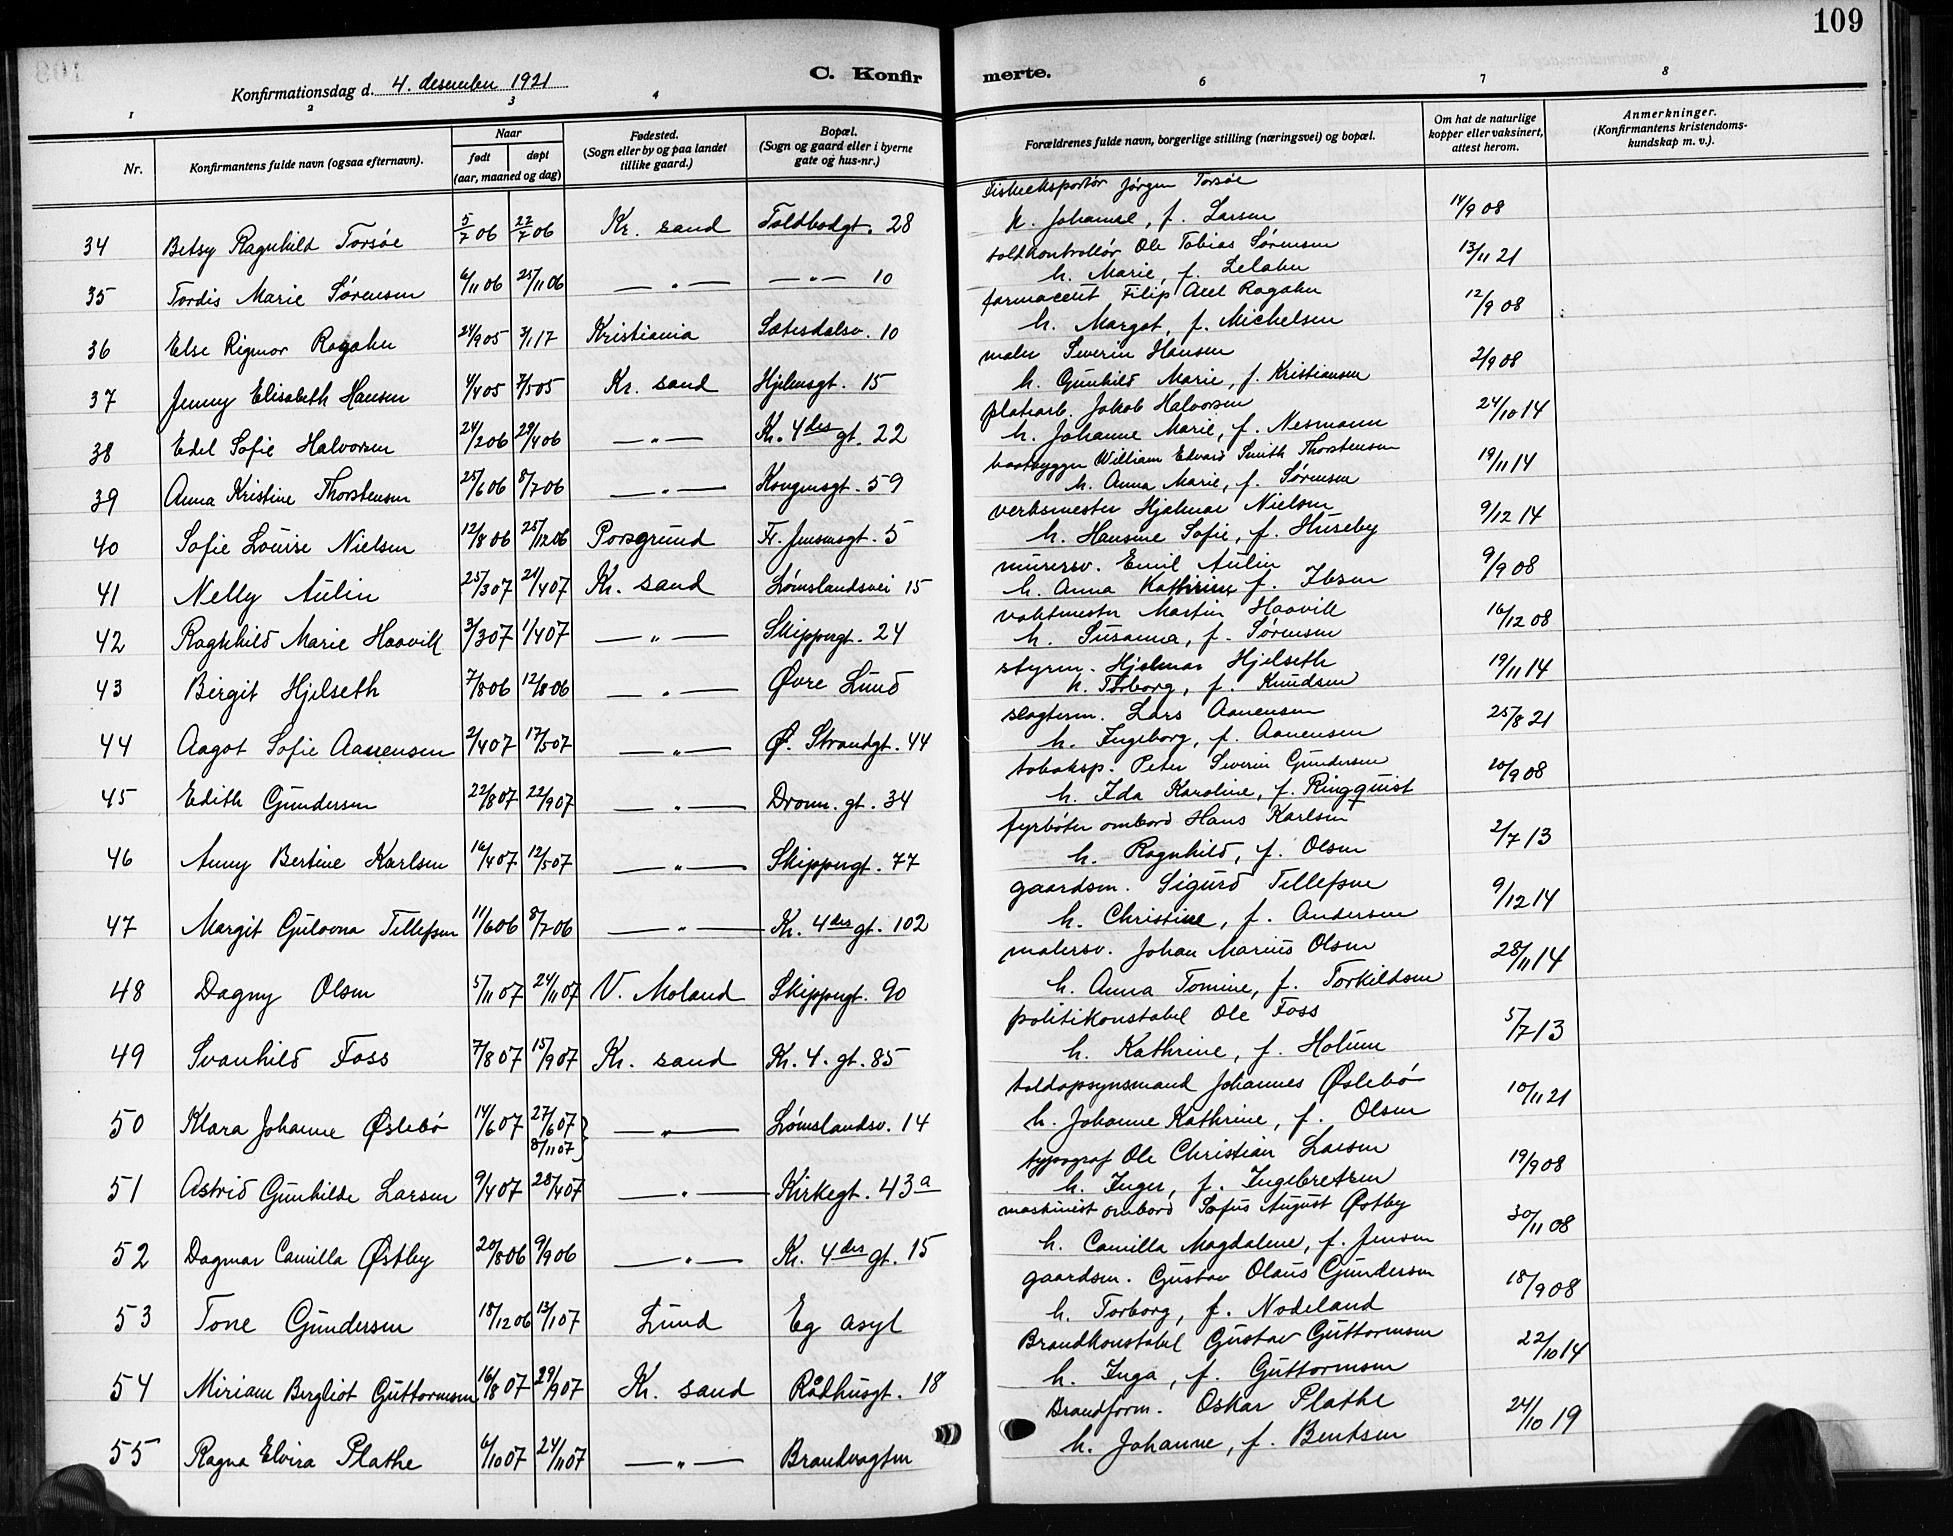 109
C. Konfirmerte.
Konfirmationsdag d. 4. desember 1921
1 2 3 4 6 7 8
Nr.
Konfirmantens fulde navn (ogsaa efternavn).
Naar
født døpt
(aar, maaned og dag)
Fødested.
(Sogn eller by og paa landet
tillike gaard.)
Bopæl.
(Sogn og gaard eller i byerne
gate og hus-nr.)
Forældrenes fulde navn, borgerlige stilling (næringsvei) og bopæl.
Om hat de naturlige
kopper eller vaksinert,
attest herom.
Anmerkninger.
(Konfirmantens kristendoms-
kundskap m. v.).
34 Betsy Ragnhild Torsøe 5/7 06 22/7 06 Kr. sand Toldbodgt. 28
Fiskeeksportør Jørgen Torsøe
h. Johanne, f. Larsen 14/9 08
35 Tordis Marie Sørensen 6/11 06 25/11 06 — " — — " — 10
toldkontrollør Ole Tobias Sørensen
h. Marie, f. 13/11 21
36 Else Rigmor Rogahn 24/9 05 3/1 17 Kristiania Sætesdalsv. 10
farmaceut Filip Axel Rogahn
h. Margot, f. Michelsen 12/9 08
37 Jenny Elisabeth Hansen 4/4 05 7/5 05 Kr. sand Hjelmsgt. 15
maler Severin Hansen
h. Gunhild Marie, f. Kristiansen 2/9 08
38 Edel Sofie Halvorsen 24/2 06 29/4 06 — " — Kr. 4des gt. 22
platearb. Jakob Halvorsen
h. Johanne Marie, f. Nesmann 24/10 14
39 Anna Kristine Thorstensen 25/6 06 8/7 06 — " — Kongensgt. 59
baatbygger William Edvard Smith Thorstensen
h. Anna Marie, f. Sørensen 19/11 14
40 Sofie Louise Nielsen 12/8 06 25/12 06 Porsgrund Fr. Jensensgt. 5
verksmester Hjalmar Nielsen
h. Hansine Sofie, f. Huseby 9/12 14
41 Nelly Aulin 25/3 07 21/4 07 Kr. sand Lømslandsvei 15
murersv. Emil Aulin
h. Anna Kathrine, f. Ibsen 9/9 08
42 Ragnhild Marie Haavik 3/3 07 1/4 07 — " — Skippergt. 24
vaktmester Martin Haavik
h. Susanna, f. Sørensen 16/12 08
43 Birgit Hjelseth 7/8 06 12/8 06 — " — Øvre Lund
styrm. Hjalmar Hjelseth
h. Torborg, f. Knudsen 19/11 14
44 Aagot Sofie Aanensen 2/4 07 17/5 07 — " — Ø. Strandgt. 44
slagterm. Lars Aanensen
h. Ingeborg, f. Aanensen 25/8 21
45 Edith Gundersen 22/8 07 22/9 07 — " — Dronn. gt. 34
tobaksp. Peter Severin Gundersen
h. Ida Karoline, f. Ringquist 20/9 08
46 Anny Bertine Karlsen 16/4 07 12/5 07 — " — Skippergt. 77
fyrbøter ombord Hans Karlsen
h. Ragnhild, f. Olsen 2/7 13
47 Margit Gulovna Tellefsen 11/6 06 8/7 06 — " — Kr. 4des gt. 102
gaardsm. Sigurd Tellefsen
h. Christine, f. Andersen 9/12 14
48 Dagny Olsen 5/11 07 24/11 07 V. Moland Skippergt. 90
malersv. Johan Marius Olsen
h. Anna Tomine, f. Torkildsen 28/11 14
49 Svanhild Foss 7/8 07 15/9 07 Kr. sand Kr. 4. gt. 85
politikonstabel Ole Foss
h. Kathrine, f. Holum 5/7 13
50 Klara Johanne Øslebø 14/6 07 27/6 07 8/11 07 } — " — Lømslandsv. 14
toldopsynsmand Johannes Øslebø
h. Johanne Kathrine, f. Olsen 10/11 21
51 Astrid Gunhilde Larsen 9/4 07 28/4 07 — " — Kirkegt. 43a
typograf Ole Christian Larsen
h. Inger, f. Ingebretsen 19/9 08
52 Dagmar Camilla Østby 20/8 06 9/9 06 — " — Kr. 4des gt. 15
maskinist ombord Sofus August Østby
h. Camilla Magdalene, f. Jensen 30/11 08
53 Tone Gundersen 18/12 06 13/1 07 Lund Eg asyl
gaardsm. Gustav Olaus Gundersen
h. Torborg, f. Nodeland 18/9 08
54 Miriam Bergliot Guttormsen 16/8 07 29/9 07 Kr. sand Rådhusgt. 18
Brandkonstabel Gustav Guttormsen
h. Inga, f. Guttormsen 22/10 14
55 Ragna Elvira Plathe 6/10 07 24/11 07 — " — Brandvagten
Brandform. Oskar Plathe
h. Johanne, f. Bentsen 24/10 19